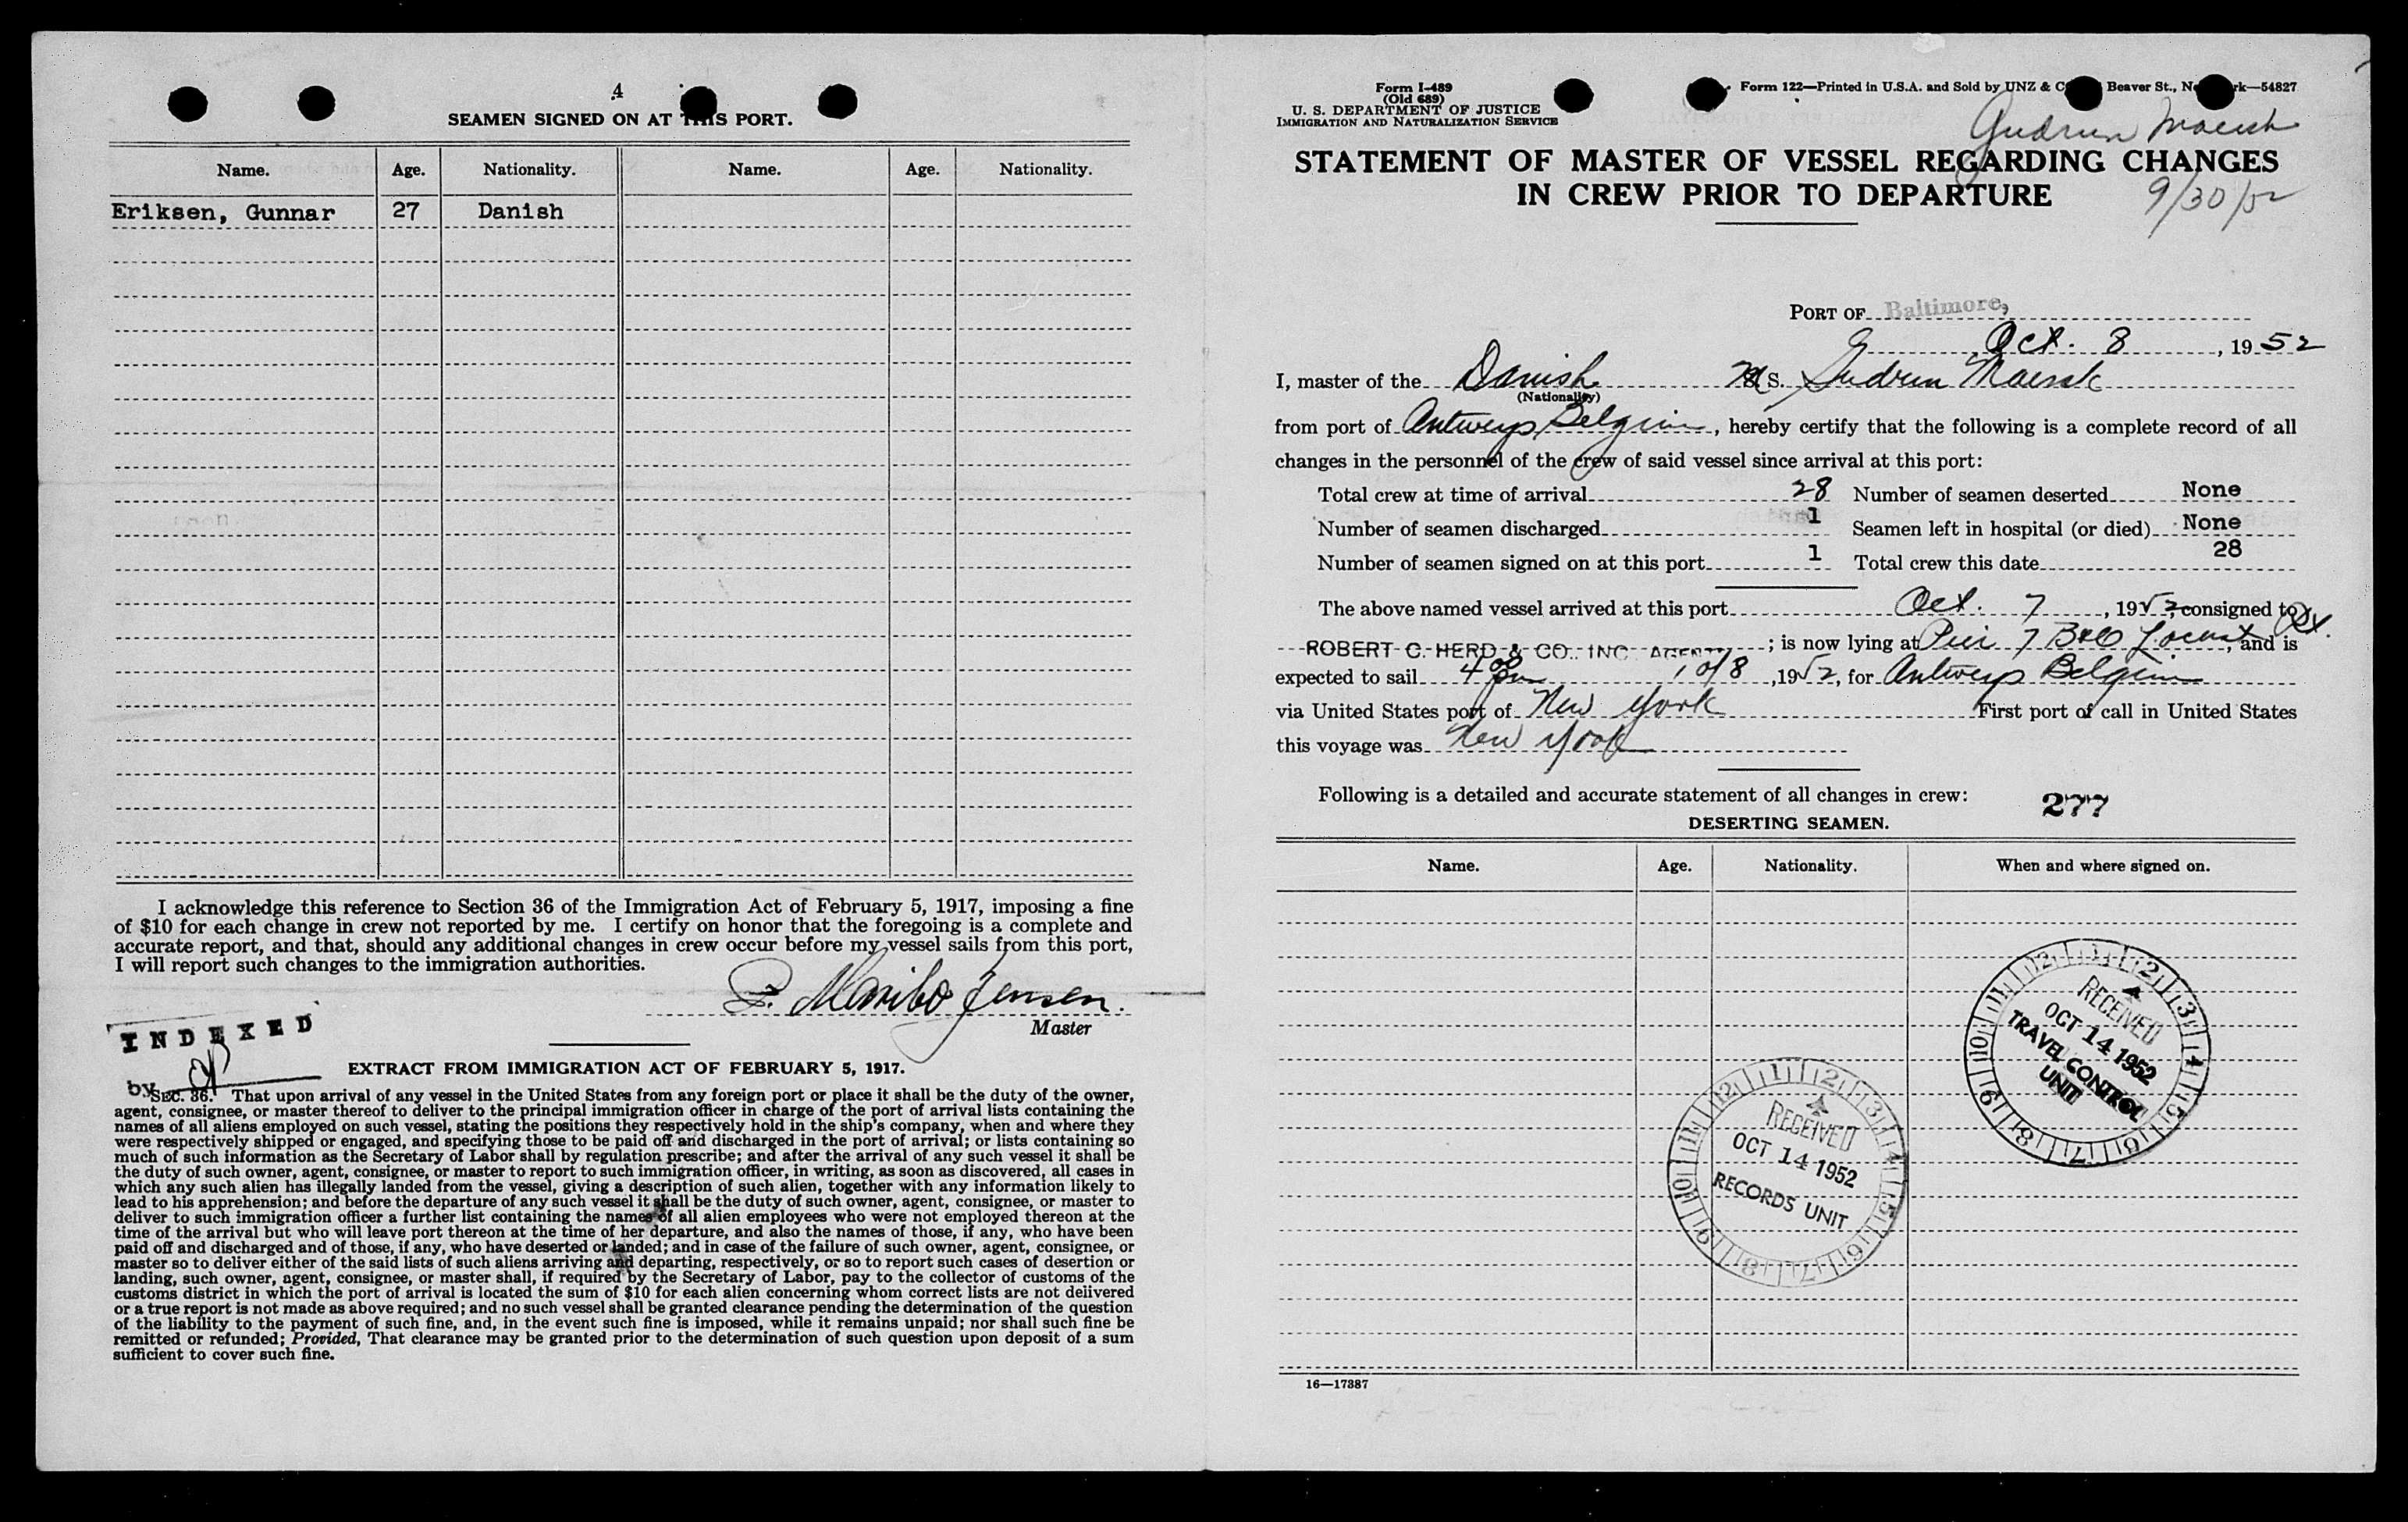 4
SEAMEN SIGNED ON AT THIS PORT.
Name. Age. Nationality. Name. Age. Nationality.
Eriksen, Gunnar 27 Danish
I acknowledge this reference to Section 36 of the Immigration Act of February 5, 1917, imposing a fine
of $10 for each change in crew not reported by me. I certify on honor that the foregoing is a complete and
accurate report, and that, should any additional changes in crew occur before my vessel sails from this port,
I will report such changes to the immigration authorities.
Maribo Jensen.
Master
INDEXED
by
EXTRACT FROM IMMIGRATION ACT OF FEBRUARY 5, 1917.
SEC. 36. That upon arrival of any vessel in the United States from any foreign port or place it shall be the duty of the owner,
agent, consignee, or master thereof to deliver to the principal immigration officer in charge of the port of arrival lists containing the
names of all aliens employed on such vessel, stating the positions they respectively hold in the ship's company, when and where they
were respectively shipped or engaged, and specifying those to be paid off and discharged in the port of arrival; or lists containing so
much of such information as the Secretary of Labor shall by regulation prescribe; and after the arrival of any such vessel it shall be
the duty of such owner, agent, consignee, or master to report to such immigration officer, in writing, as soon as discovered, all cases in
which any such alien has illegally landed from the vessel, giving a description of such alien, together with any information likely to
lead to his apprehension; and before the departure of any such vessel it shall be the duty of such owner, agent, consignee, or master to
deliver to such immigration officer a further list containing the names of all alien employees who were not employed thereon at the
time of the arrival but who will leave port thereon at the time of her departure, and also the names of those, if any, who have been
paid off and discharged and of those, if any, who have deserted or landed; and in case of the failure of such owner, agent, consignee, or
master so to deliver either of the said lists of such aliens arriving and departing, respectively, or so to report such cases of desertion or
landing, such owner, agent, consignee, or master shall, if required by the Secretary of Labor, pay to the collector of customs of the
customs district in which the port of arrival is located the sum of $10 for each alien concerning whom correct lists are not delivered
or a true report is not made as above required; and no such vessel shall be granted clearance pending the determination of the question
of the liability to the payment of such fine, and, in the event such fine is imposed, while it remains unpaid; nor shall such fine be
remitted or refunded; Provided, That clearance may be granted prior to the determination of such question upon deposit of a sum
sufficient to cover such fine.
Form I-489
(Old 689)
U. S. DEPARTMENT OF JUSTICE
IMMIGRATION AND NATURALIZATION SERVICE
Form 122—Printed in U.S.A. and Sold by UNZ & C Beaver St., N rk—54827
Gudrun Maersk
STATEMENT OF MASTER OF VESSEL REGARDING CHANGES
IN CREW PRIOR TO DEPARTURE
9/30/52
PORT OF Baltimore,
Oct. 8, 1952
I, master of the Danish M S. Gudrun Maersk
(Nationality)
from port of Antwerp Belgium, hereby certify that the following is a complete record of all
changes in the personnel of the crew of said vessel since arrival at this port:
Total crew at time of arrival 28 Number of seamen deserted None
Number of seamen discharged 1 Seamen left in hospital (or died) None
Number of seamen signed on at this port 1 Total crew this date 28
The above named vessel arrived at this port Oct. 7, 1952, consigned to
ROBERT C. HERD & CO., INC. AGENTS; is now lying at Pier 7 B&O Locust Pt., and is
expected to sail 4 00 pm 10/8, 1952, for Antwerp Belgium
via United States port of New York First port of call in United States
this voyage was New York
Following is a detailed and accurate statement of all changes in crew:
277
DESERTING SEAMEN.
Name. Age. Nationality. When and where signed on.
12 1 2 3 4 5 6 7 8 9 10 11
RECEIVED
OCT 14 1952
TRAVEL CONTROL
UNIT
12 1 2 3 4 5 6 7 8 9 10 11
RECEIVED
OCT 14 1952
RECORDS UNIT
16—17387